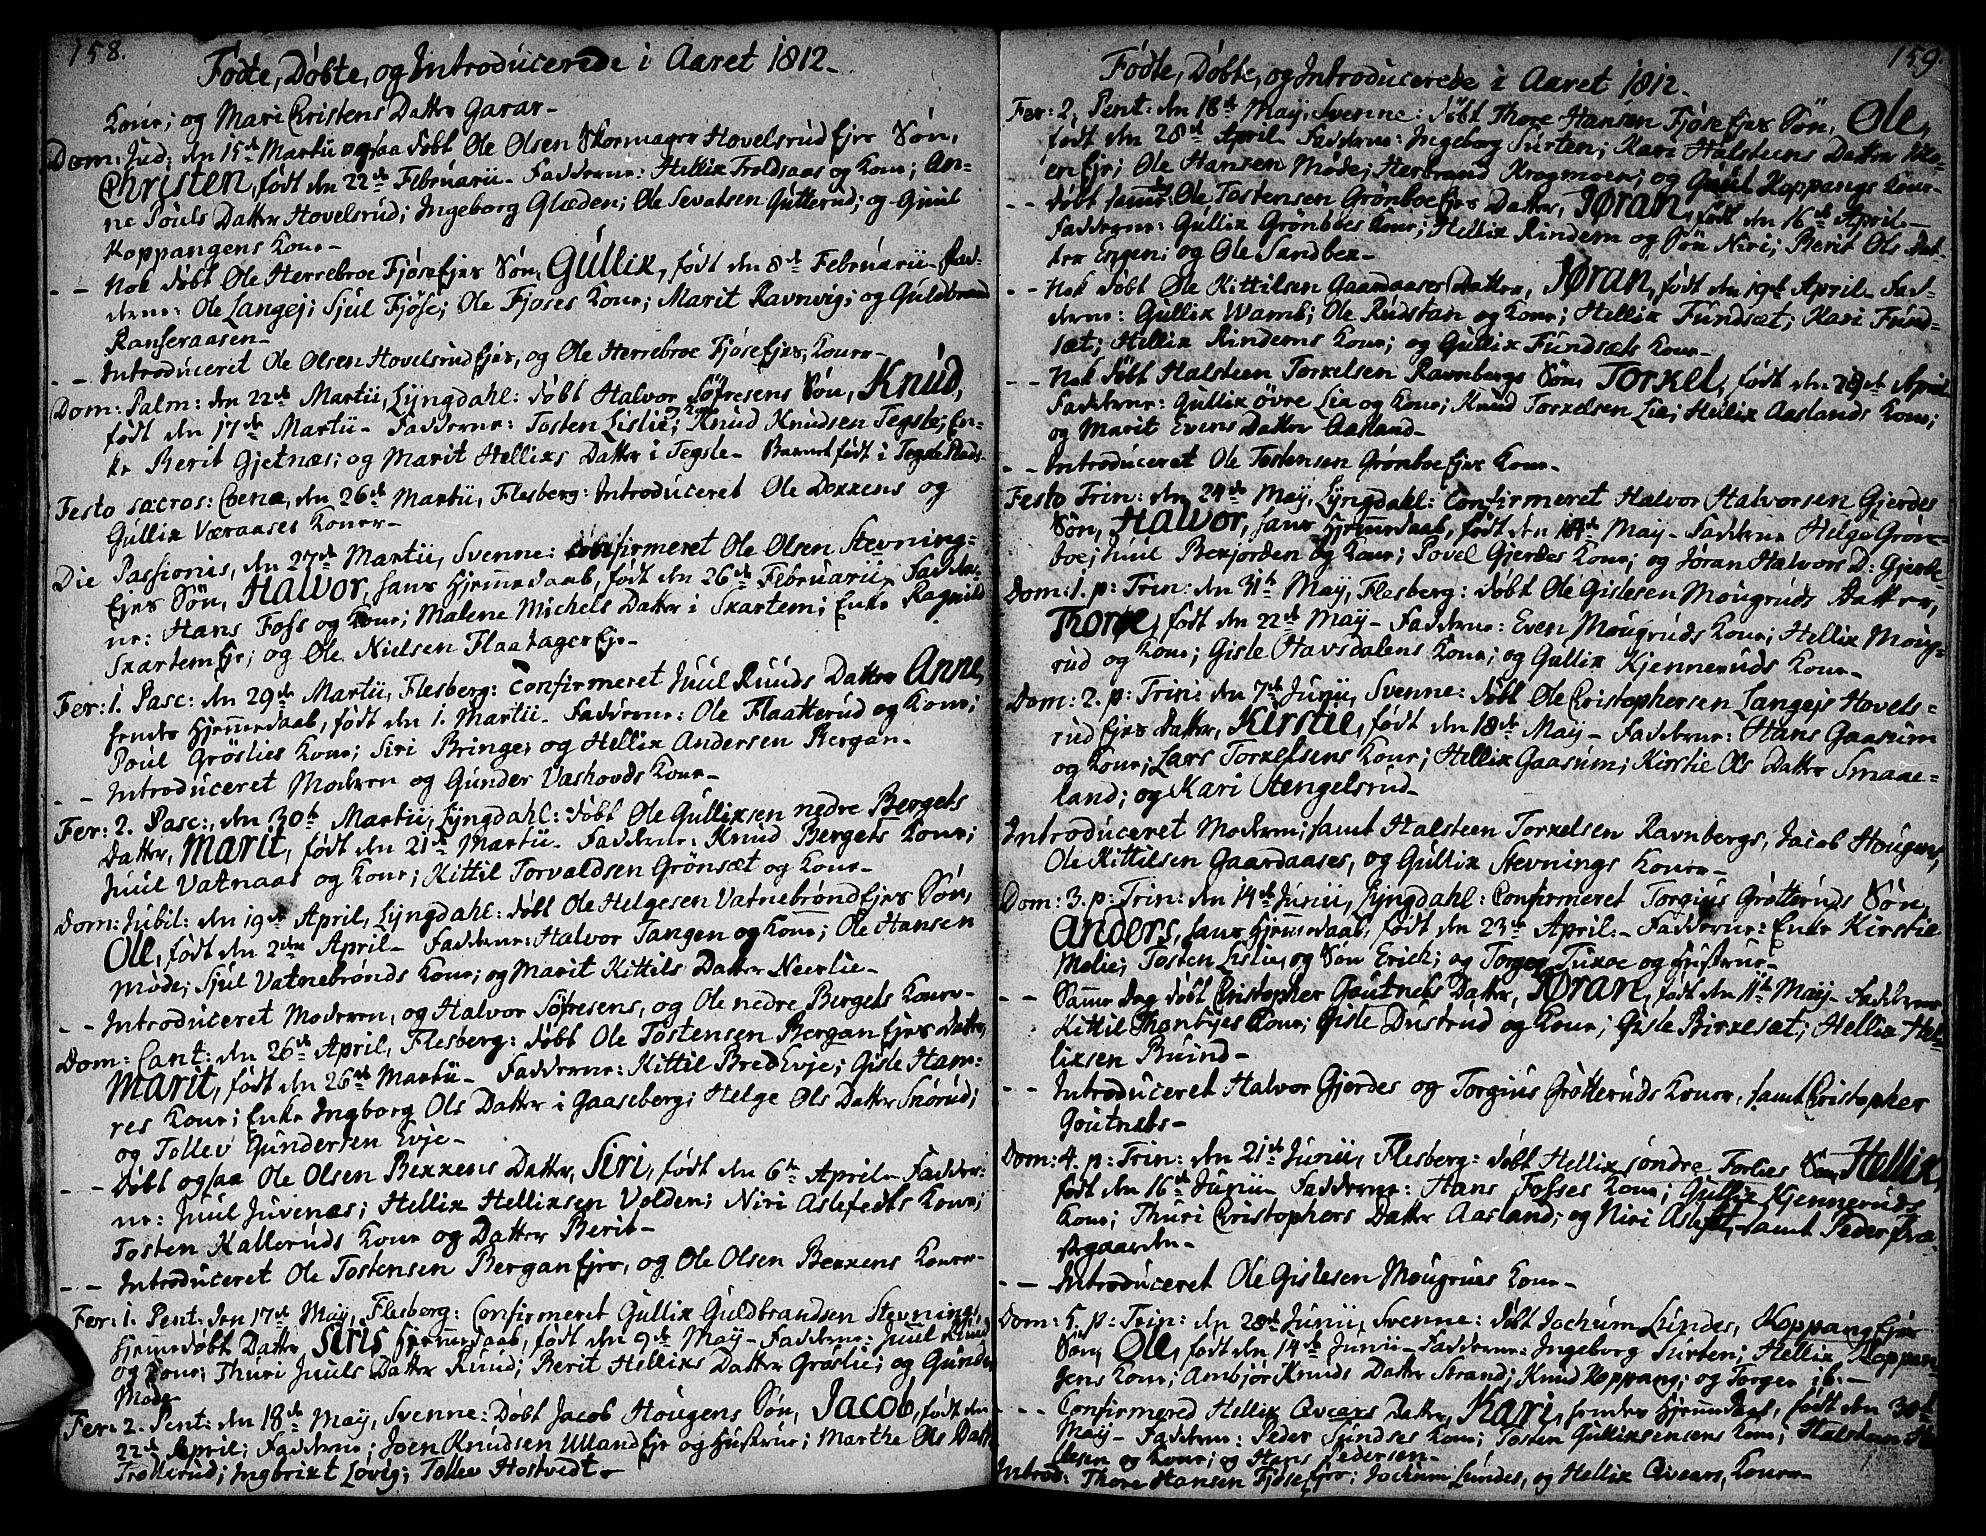 158.
Födte, Döbte, og Introducerede i Aaret 1812.
Kone; og Mari Christens Datter Garar.
Dom: Jud: den 15de Martii ogsaa döbt Ole Olsen Skomager Hovelsrud Ejes Sön,
Christen, födt den 22de Februarii. Faddere: Hellix Troldsaas og Kone; An-
ne Pouls Datter Hovelsrud; Ingeborg Glæden; Ole Sevatsen Gutterud; og Guul
Koppangens Kone.
- - Nok döbt Ole Herrebroe Fjöse Ejes Sön, Gullix, födt den 8de Februarii. Fad-
derne: Ole Langej; Sjul Fjöse; Ole Fjöses Kone; Marit Ravnvig; og Guldbrand
Ranseraasen.
- - Introduceret Ole Olsen Hovelsrud Ejes, og Ole Herrebroe Fjöse Ejes, Koner.
Dom: Palm: den 22de Martii, Lyngdahl: döbt Halvor Söfresens Sön, Knud,
födt den 17de Martii. Fadderne: Tosten Lislie; Knud Knudsen Tegsle; En-
ke Berit Gjetnæs; og Marit Hellixs Datter i Tegsle. Barnet födt i Tegsle Plads.
Festo sacros: Coena, den 26de Martii, Flesberg: Introduceret Ole Dokkens og
Gullix Væraases Koner.
Die Passionis, den 27de Martii, Svenne: confirmeret Ole Olsen Stevning-
Ejes Sön, Halvor, hans Hjemmedaab, födt den 26de Februarii. Fadder-
ne: Hans Foss og Kone; Malene Michels Datter i Skartem; Enke Ragnild
Skartem Eje; og Ole Nielsen Flaatager Eje.
Fer: 1. Pasc: den 29de Martii, Flesberg: Confirmeret Juul Ruuds Datter Anne,
hendes Hjemmedaab, födt den 1. Martii. Fadderne: Ole Flaatterud og Kone;
Poul Gröslies Kone; Siri Bringe; og Hellix Andersen Bergan.
- - Introduceret Moderen og Gunder Vashovds Kone.
Fer: 2. Pasc:, den 30te Martii, Lyngdahl: döbt Ole Gullixsen nedre Bergets
Datter, Marit, födt den 21de Martii. Fadderne: Knud Bergets Kone;
Juul Vatnaas og Kone; Kittil Torvaldsen Grönsæt og Kone.
Dom: Jubil: den 19de April, Lyngdahl: döbt Ole Helgesen Vatnebrönd Ejes Sön,
Ole, födt den 2den April. Fadderne: Halvor Tangen og Kone; Ole Hansen
Möde; Sjul Vatnebrönds Kone; og Marit Kittils Datter Neerlie.
- - Introduceret Moderen, og Halvor Söfresens, og Ole nedre Bergets Koner.
Dom: Cant: den 26de April, Flesberg: döbt Ole Tostensen Bergan Ejes Datter,
Marit, födt den 26de Martii. Fadderne: Kittil Bred Evje; Gisle Ham-
res Kone; Enke Ingborg Ols Datter i Gaaseberg; Helge Ols Datter Snörud;
og Tollev Gundersen Evje.
- - Döbt ogsaa Ole Olsen Bekkens Datter, Siri, födt den 6te April. Fadder-
ne: Juul Juvenæs; Hellix Hellixsen Volden; Niri Aslefedts Kone;
Tosten Kalleruds Kone og Datter Berit.
- - Introduceret Ole Tostensen Bergan Ejes, og Ole Olsen Bekkens Koner.
Fer: 1. Pent: den 17de May, Flesberg: Confirmeret Gullix Guldbrandsen Stevnings
hjemmedöbt Datter, Siris Hjemmedaab, födt den 9de May. Fadderne: Juul Ruud
og Kone; Thuri Juuls Datter Ruud; Berit Hellixs Datter Gröslie; og Gunder
Möde.
Fer: 2. Pent: den 18de May, Svenne: Döbt Jacob Hougens Sön, Jacob, födt den
22de April; Fadderne; Joen Knudsen Ulland Eje og Hustrue; Marthe Ols Datter
Trollerud; Ingbrixt Lövig; Tollev Hostvedt.
159.
Födte, Döbte, og Introducerede i Aaret 1812.
Fer: 2. Pent: den 18de May, Svenne: döbt Thore Hansen Fjöse Ejes Sön, Ole,
födt den 28de April. Fadderne: Ingeborg Surten; Kari Halsteens Datter Mo-
en Eje; Ole Hansen Möde; Herbrand Krogmoen; og Guul Koppangs Kone.
- - döbt samme Ole Tostensen Grönboe Ejes Datter, Jøran, födt den 16de April.
Fadderne: Gullix Grönboes Kone; Hellix Rindern og Sön Niri; Berit Ols Dat-
ter Engen; og Ole Sandbek.
- - Nok döbt Ole Kittilsen Gaardaases Datter, Jøran, födt den 19de April. Fad-
derne: Gullix Wamb; Ole Rudstan og Kone; Hellix Fundsæt; Kari Fund-
sæt; Hellix Rinderns Kone; og Gullix Fundsæts Kone.
- - Nok döbt Halsteen Torkelsen Ravnbergs Sön, Torkel, födt den 29de April.
Fadderne: Gullix övre Lia og Kone; Knud Torkelsen Lie; Hellix Aaslands Kone;
og Marit Evens Datter Aasland.
- - Introduceret Ole Tostensen Grönboe Ejes Kone.
Festo Trin: den 24de May, Lyngdahl: Confirmeret Halvor Halvorsen Gjerdes
Sön, Halvor, hans Hjemmedaab, födt den 10de May. Fadderne Helge Grön-
boe; Juul Bexjorden og Kone; Povel Gjerdes Kone; og Jøran Halvors D: Gjerde.
Dom: 1. p: Trin: den 31te May, Flesberg: döbt Ole Gislesen Mougruds Datter,
Thorøe, födt den 22de May. Fadderne: Even Mougruds Kone; Hellix Moug-
rud og Kone; Gisle Havsdalens Kone; og Gullix Kjenneruds Kone.
Dom: 2. p: Trin: den 7de Junii, Svenne: döbt Ole Christophersen Langejs Hovels-
rud Ejes Datter, Kirstie, födt den 18de May. Fadderne: Hans Gaasum
og Kone; Lars Torkelsens Kone; Hellix Gaasum; Kirstie Ols Datter Smaae-
land; og Kari Stengelsrud.
Introduceret Moderen; samt Halsteen Torkelsen Ravnbergs, Jacob Hougens,
Ole Kittilsen Gaardaases, og Gullix Stevnings Koner.
Dom: 3. p: Trin: den 14de Junii, Lyngdahl: Confirmeret Torgius Grötteruds Sön,
Anders, hans Hjemmedaab, födt den 23de April. Fadderne: Enke Kirstie
Melie; Tosten Lislie, og Sön Erich; og Torger Tuxoe og Hustrue.
- - Samme Dag döbt Christopher Goutnets Datter, Jøran, födt den 11te May. Fadderne
Kittil Thonbyes Kone; Gisle Dustrud og Kone; Gisle Birkesæt; Hellix Hel-
lixsen Buind.
- - Introduceret Halvor Gjerdes og Torgius Grötteruds Koner, samt Christopher
Goutnets.
Dom: 4. p: Trin: den 21de Junii, Flesberg: döbt Hellix söndre Forlies Sön, Hellix,
födt den 16de Junii. Fadderne: Hans Fosses Kone; Gullix Kjenneruds
Kone; Thuri Christophers Datter Aasland; og Niri Aslefet, samt Peder Præ-
stegaarden.
- - Introduceret Ole Gislesen Mougrues Kone.
Dom: 5. p: Trin: den 28de Junii, Svenne: döbt Jochum Lundes, Koppang Ejes
Sön, Ole, födt den 14de Junii. Fadderne: Ingeborg Surten; Hellix Koppan-
gens Kone; Ambjör Knuds Datter Strand; Knud Koppang; og Torger ib:
- - Confirmered Hellix Qværs Datter, Kari, hendes Hjemmedaab, födt den 30te
May. Fadderne: Peder Lundses Kone; Tosten Gullixsensens Kone; Halsteen
og Kone; og Hans Pedersen.
Introd: Thore Hansen Fjöse Ejes; Jochum Lundes, og Hellix Qværs, Koner.